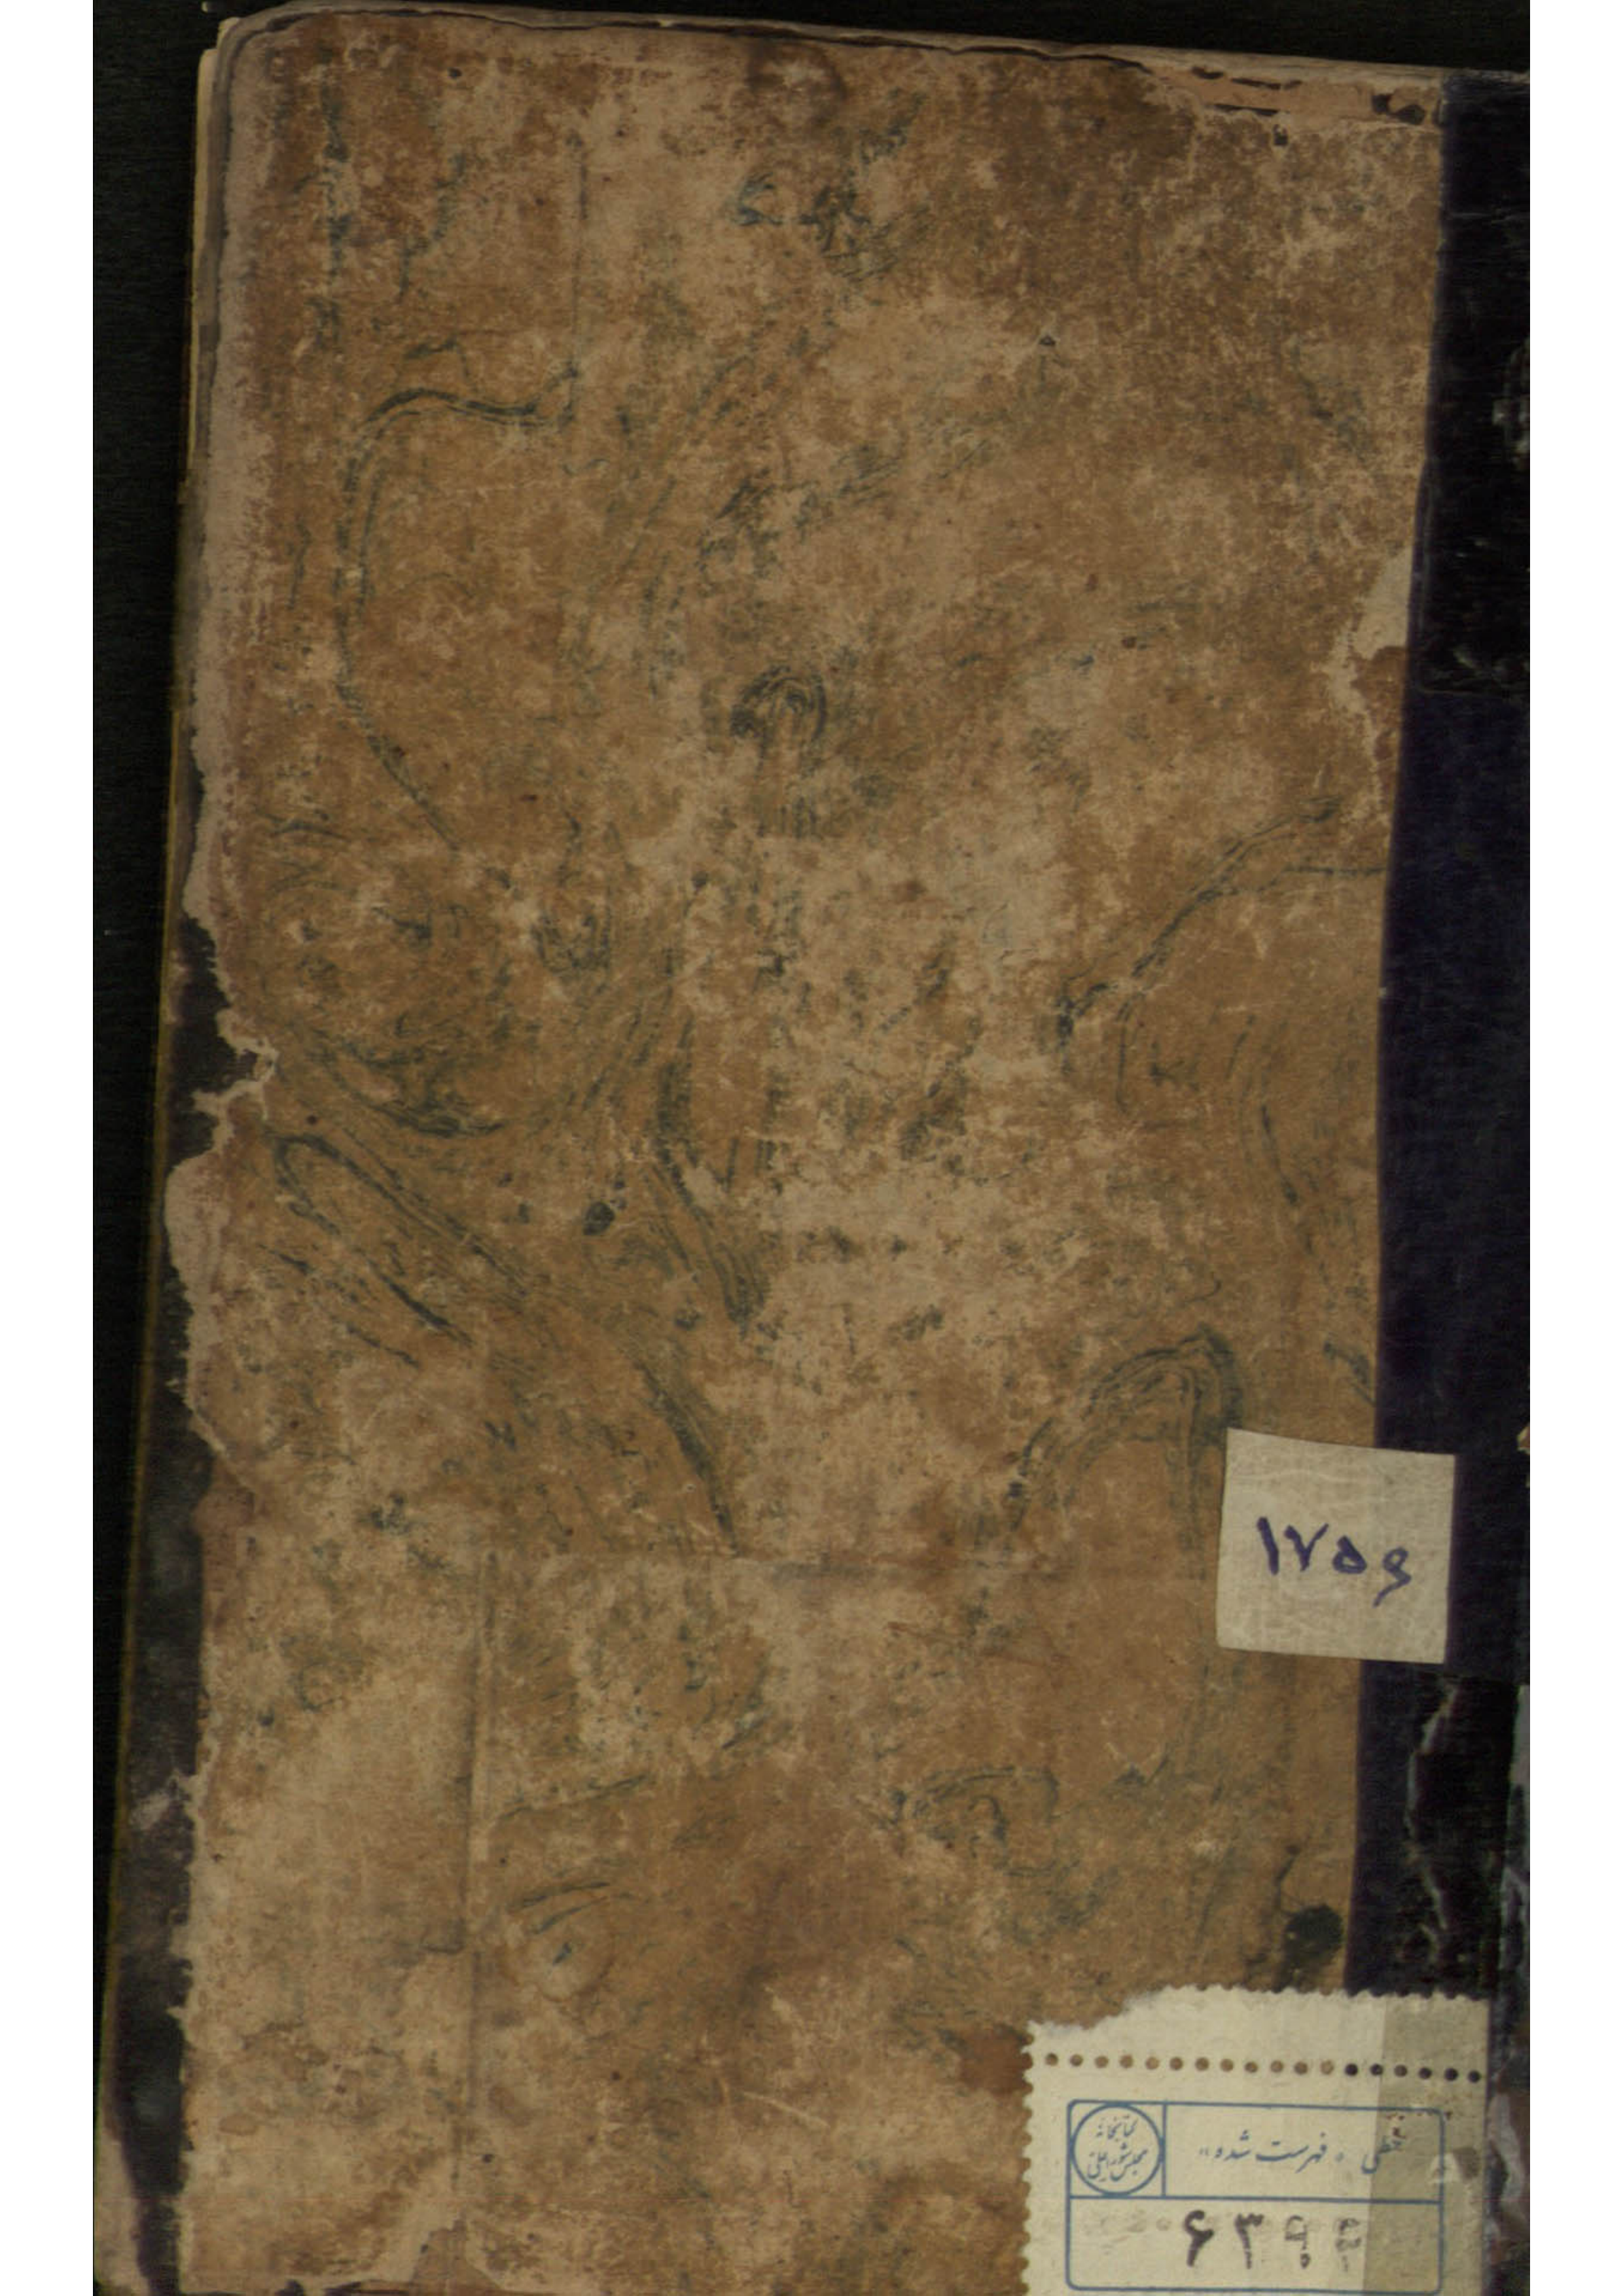 ۱۷۵و
کتابخانه
مجلس شورای ملی
خطی «فهرست شده»
۶۳۹۴